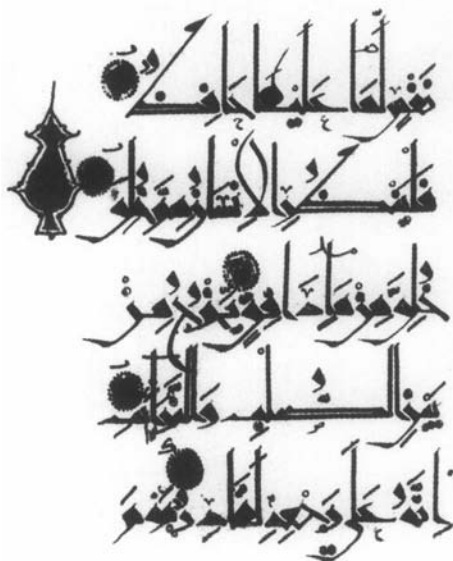 نَفْسٍ لَّمَّا عَلَيْهَا حَافِظٌ
فَلْيَنظُرِ الْإِنسَانُ مِمَّ خُلِقَ
خُلِقَ مِن مَّاءٍ دَافِقٍ يَخْرُجُ مِن
بَيْنِ الصُّلْبِ وَالتَّرَائِبِ
إِنَّهُ عَلَىٰ رَجْعِهِ لَقَادِرٌ يَوْمَ